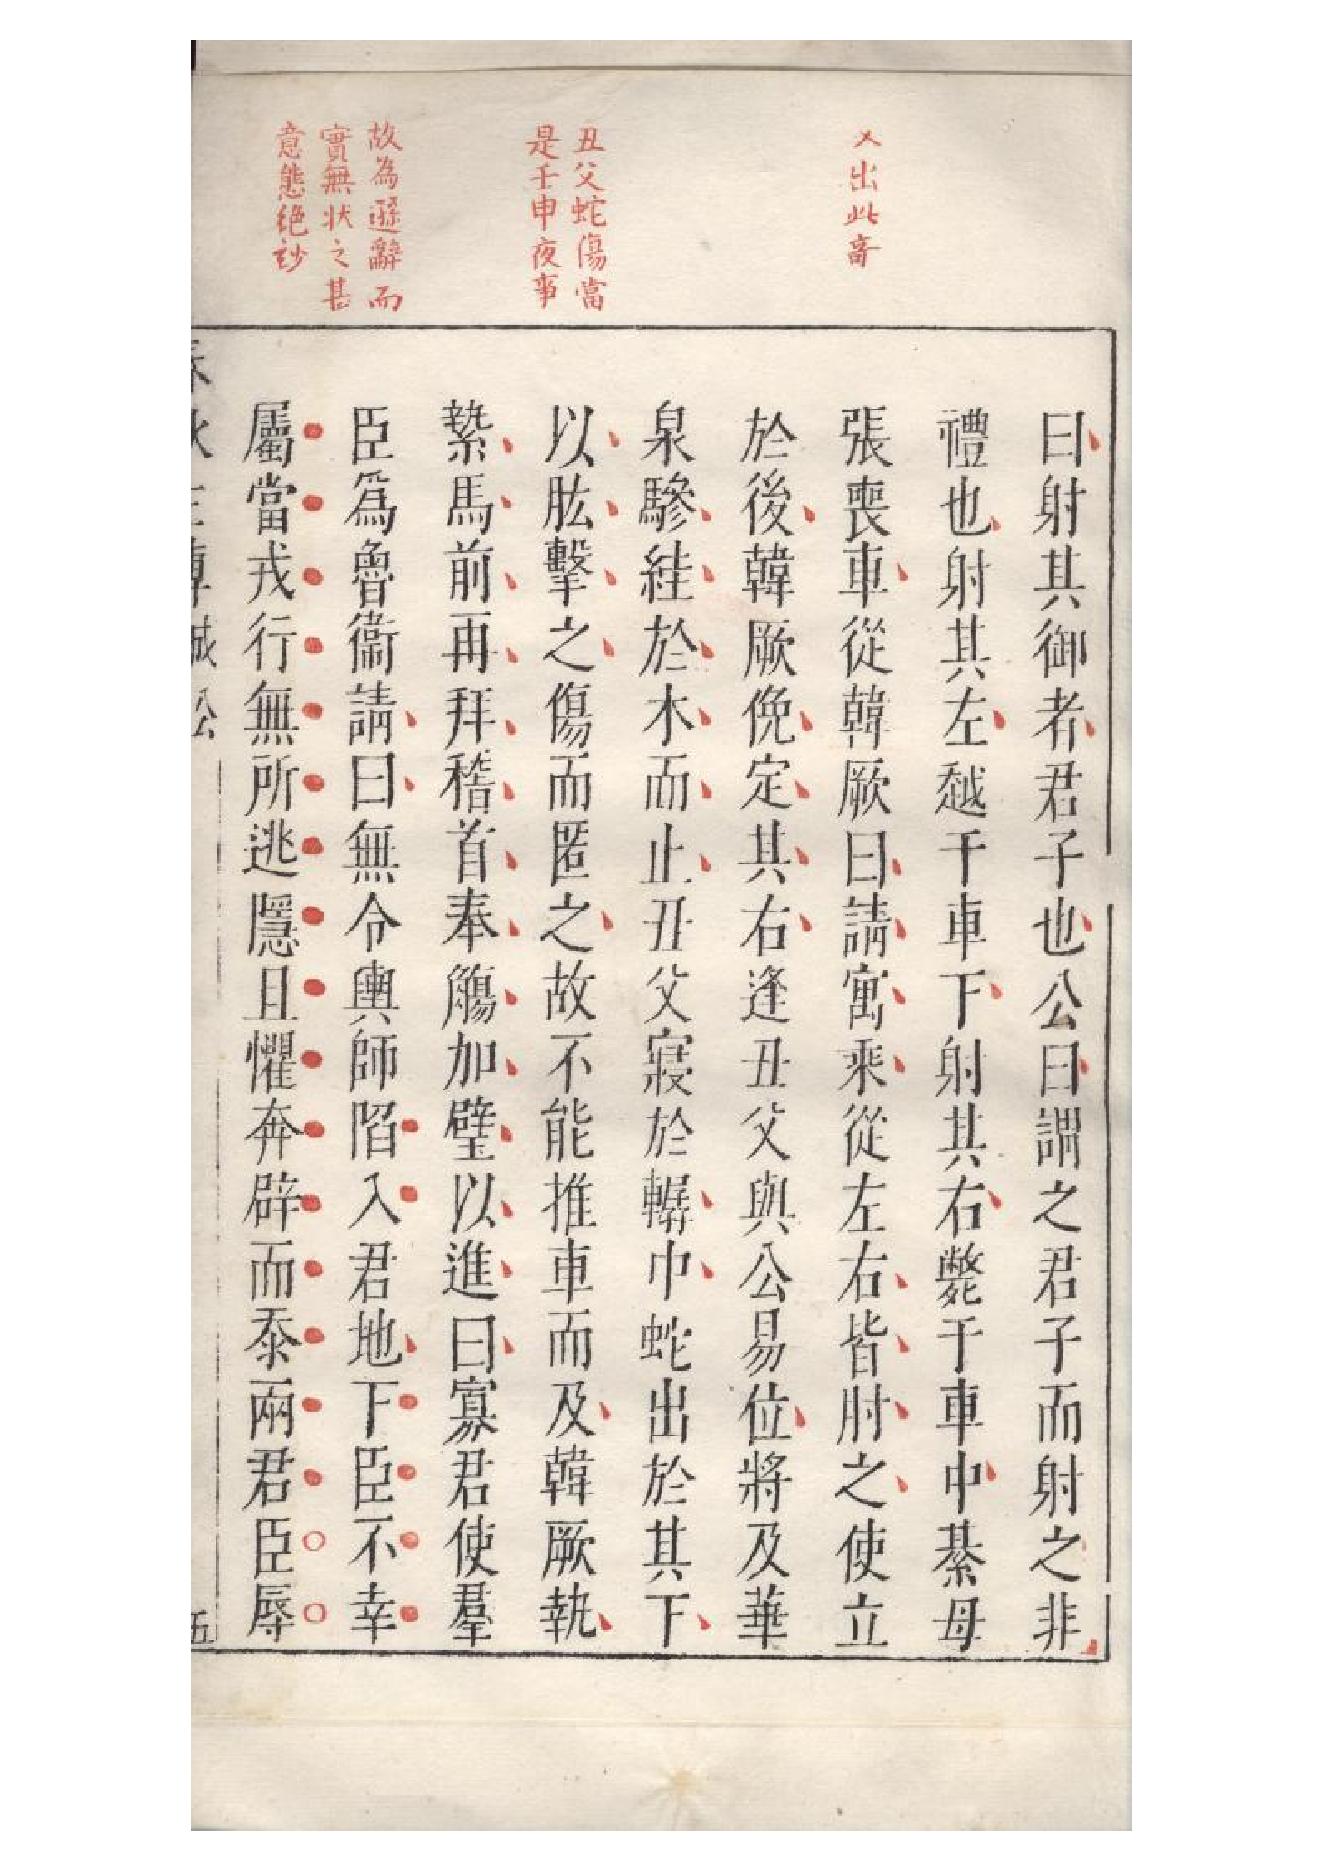 又出此奇
丑父蛇傷當
是壬申夜事
故為遜辭而
實無狀之甚
意態絶玅
曰射其御者君子也公曰謂之君子而射之非
禮也射其左越于車下射其右斃于車中綦母
張喪車從韓厥曰請寓乘從左右皆肘之使立
於後韓厥俛定其右逢丑父與公易位將及華
泉驂絓於木而止丑父寢於轏中蛇出於其下
以肱擊之傷而匿之故不能推車而及韓厥執
縶馬前再拜稽首奉觴加璧以進曰寡君使羣
臣爲魯衞請曰無令輿師陷入君地下臣不幸
屬當戎行無所逃隱且懼奔辟而忝兩君臣辱
春秋左傳
五